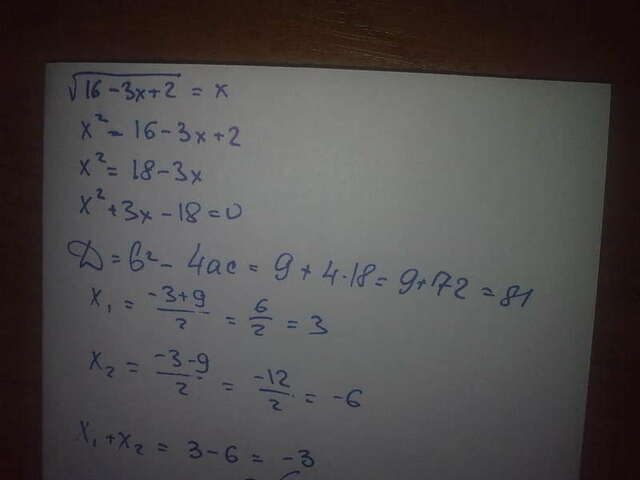 √(16-3x+2) = x
x² = 16-3x+2
x² = 18-3x
x²+3x-18=0
D = b²-4ac = 9+4·18 = 9+72 = 81
x₁ = (-3+9)/2 = 6/2 = 3
x₂ = (-3-9)/2 = -12/2 = -6
x₁+x₂ = 3-6 = -3